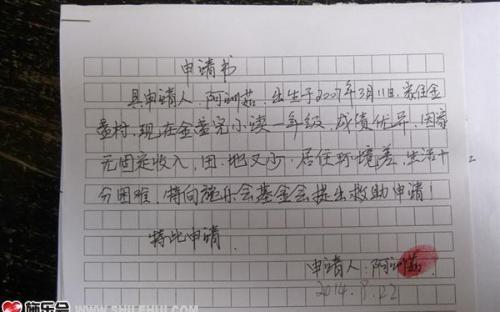 申请书
具申请人 阿呷茹. 出生于2007年3月11日. 家住金
曼村. 现在金曼完小读一年级, 成绩优异. 因家
无固定收入, 田地又少. 居住环境差, 生活十
分困难. 特向施乐会基金会提出救助申请!
特此申请.
申请人: 阿呷茹.
2014.9.22
施乐会 WWW.SHILEHUI.COM